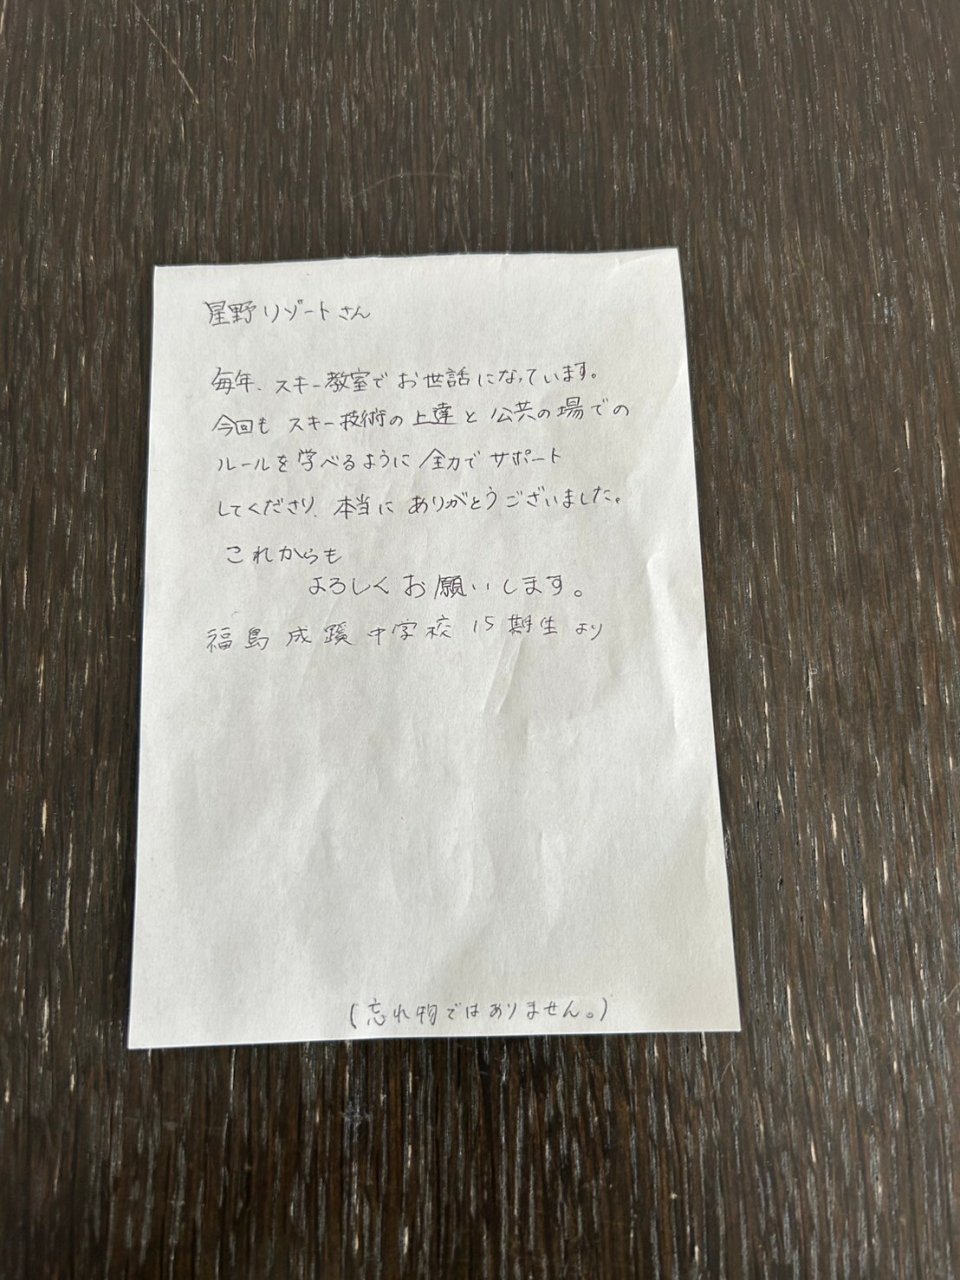 星野リゾートさん
毎年、スキー教室でお世話になっています。
今回もスキー技術の上達と公共の場での
ルールを学べるように全力でサポート
してくださり、本当にありがとうございました。
これからも
よろしくお願いします。
福島成蹊中学校15期生より
(忘れ物ではありません。)